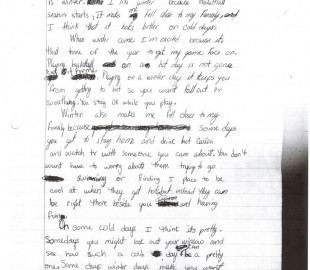 is winter. I like winter because basketball
season starts, It makes me fell close to my family, and
I think that it looks better on cold days.
When winter come I'm excited because it's
that time of the year to get my game face on.
Playing basketball on a hot day is not gonna
Playing on a winter day it keeps you
from getting to hot so you wont fall out or
something. You stay ok while you play.
Winter also makes me fell closer to my
family because Some days
you get to stay home and drink hot
and watch tv with someone you care about. You don't
want have to worry about them trying to go
Swimming or finding I place to be
cool at when they get hot, but instead they can
be right there beside you and having
fun.
On some cold days I think its pretty.
Somedays you might look out your window and
see how such a cold day can be a pretty
one. Some days winter days make you want